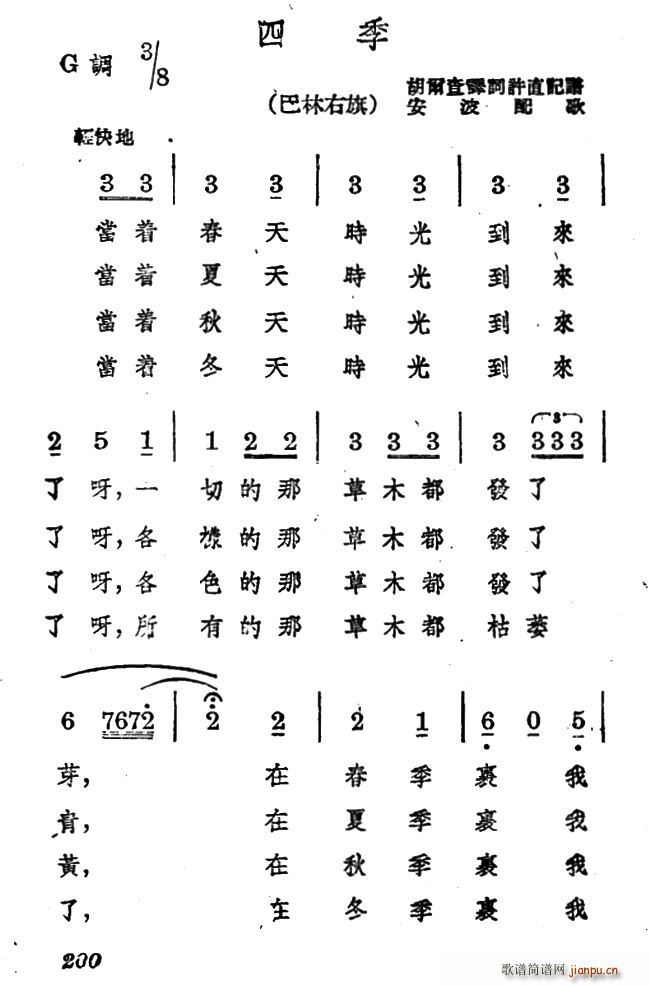 四 季
G 調 3/8
胡爾查譯詞 許直記譜
(巴林右旗) 安波配歌
輕快地
3 3 | 3 3 | 3 3 | 3 3 |
當着 春天 時光 到來
當着 夏天 時光 到來
當着 秋天 時光 到來
當着 冬天 時光 到來
2 5 1 | 1 2 2 | 3 3 3 | 3 333 |
了呀,一 切的那 草木都 發了
了呀,各 樣的那 草木都 發了
了呀,各 色的那 草木都 發了
了呀,所 有的那 草木都 枯萎
6 7672 | 2 2 | 2 1 | 6 0 5 |
芽, 在 春季 裏 我
青, 在 夏季 裏 我
黃, 在 秋季 裏 我
了, 在 冬季 裏 我
200
歌谱简谱网 jianpu.cn